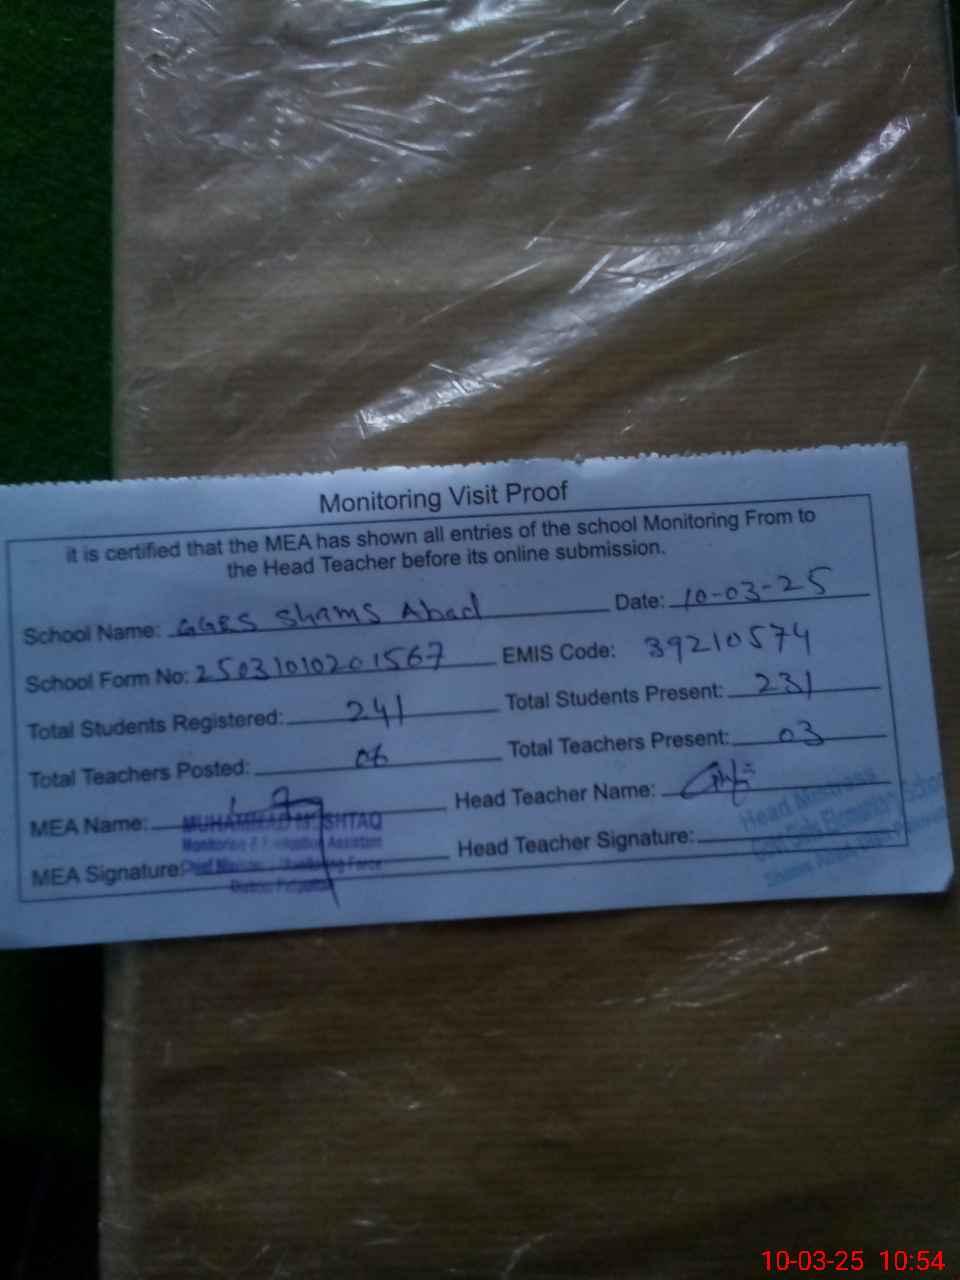 Monitoring Visit Proof
it is certified that the MEA has shown all entries of the school Monitoring From to
the Head Teacher before its online submission.
School Name: GGES Shams Abad Date: 10-03-25
School Form No: 25031010201567 EMIS Code: 39210574
Total Students Registered: 241 Total Students Present: 231
Total Teachers Posted: 06 Total Teachers Present: 03
MEA Name: Head Teacher Name:
MUHAMMAD MUSHTAQ
Monitoring & Evaluation Assistant
MEA Signature: Head Teacher Signature:
Chief Minister's Monitoring Force
District
Head Mistress
Govt Girls Elementary School
Shams Abad
10-03-25 10:54